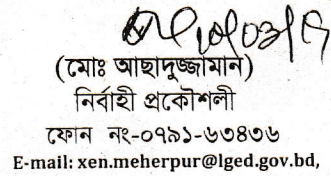 (মোঃ আছাদুজ্জামান)
নির্বাহী প্রকৌশলী
ফোন নং-০৭৯১-৬৩৪৩৬
E-mail: xen.meherpur@lged.gov.bd,